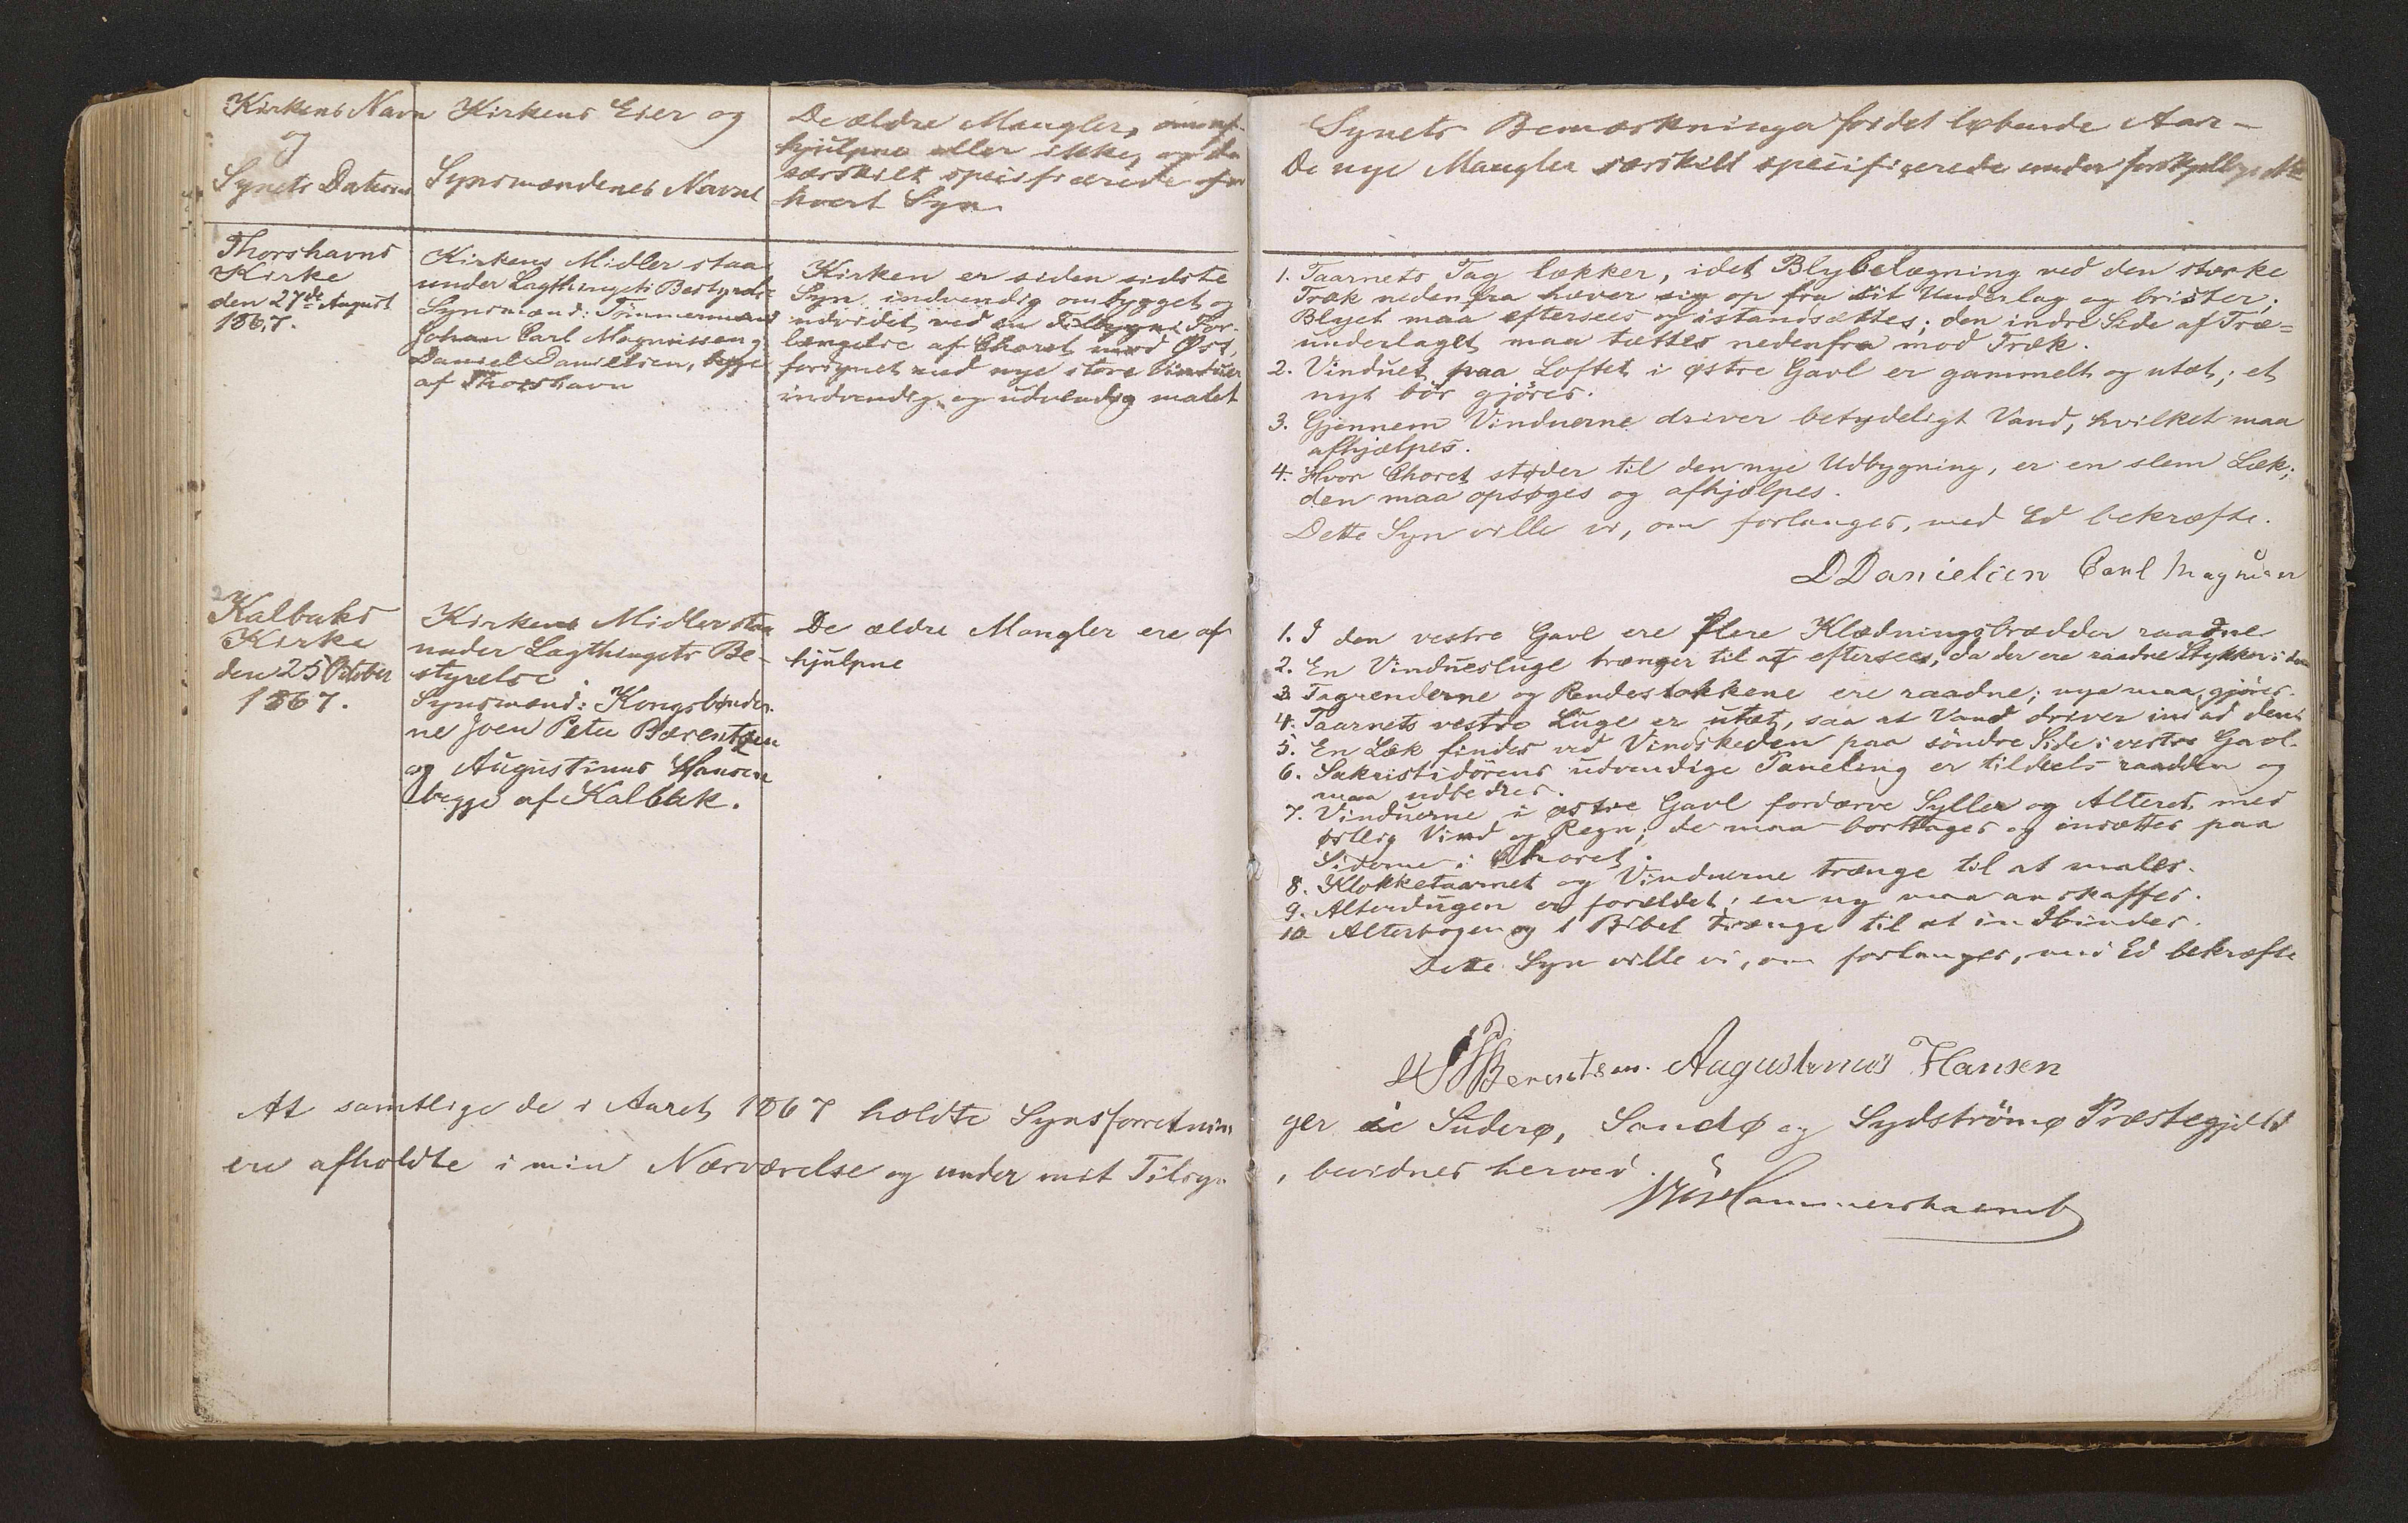 Kirkens Navn
og
Synets Datum
Kirkens Eier og
Synsmændenes Navne
De ældre Mangler, om af-
hjulpne eller ikke, og da
særskilt specificerede for
hvert Syn
Synets Bemærkninger for det løbende Aar –
De nye Mangler særskilt specificerede under forskjellige Nr
Thorshavns
Kirke
den 27de August
1867.
Kirkens Midler staa
under Lagthingets Bestyrelse
Synsmænd: Tømmermænd
Johan Carl Magnussen og
Daniel Danielsen, begge
af Thorshavn
Kirken er siden sidste
Syn indvendig ombygget og
udvidet ved en Tilbygn. For-
længelse af Choret mod Øst,
forsynet med nye store Vinduer
indvendig og udvendig malet
1. Taarnets Tag lækker, idet Blybelægning ved den stærke
Træk nedenfra hæver sig op fra sit Underlag og brister;
Blyet maa eftersees og istandsættes; den indre Side af Træ=
underlaget maa tættes nedenfra mod Træk.
2. Vinduet paa Loftet i østre Gavl er gammelt og utæt; et
nyt bör gjöres.
3. Gjennem Vinduerne driver betydeligt Vand, hvilket maa
afhjælpes.
4. Hvor Choret støder til den nye Udbygning, er en slem Læk;
den maa opsøges og afhjælpes.
Dette Syn ville vi, om forlanges, med Ed bekræfte.
D Danielsen Carl Magnusen
Kalbaks
Kirke
den 25 October
1867.
Kirkens Midler staa
under Lagthingets Be-
styrelse.
Synsmænd: Kongsbønder-
ne Joen Peter Bærentsen
og Augustinus Hansen
begge af Kalbak.
De ældre Mangler ere af
hjulpne
1. I den vestre Gavl ere flere Klædningsbrædder raadne
2. En Vinduesluge trænger til at eftersees, da der ere raadne Stykker i den
3. Tagrenderne og Rendestokkene ere raadne; nye maa gjøres.
4. Taarnets vestre Luge er utæt, saa at Vand driver ind ad den
5. En Læk findes ved Vindskeden paa söndre Side i vestre Gavl.
6. Sakristidörens udvendige Paneling er tildeels raadden og
maa udbedres.
7. Vinduerne i østre Gavl fordærve Syller og Alteret med
østlig Vind og Regn; de maa borttages og insættes paa
Siderne i Choret.
8. Klokketaarnet og Vinduerne trænge til at males.
9. Alterdugen er forældet; en ny maa anskaffes.
10 Alterbogen og 1 Bibel trænge til at indbindes.
Dette Syn ville vi, om forlanges, med Ed bekræfte
Berentsen. Augustinus Hansen
At samtlige de i Aaret 1867 holdte Synsforretnin
ger i Suderø, Sandø og Sydströmø Præstegjeld
ere afholdte i min Nærværelse og under mit Tilsyn
, bevidnes herved.
Hammershaimb